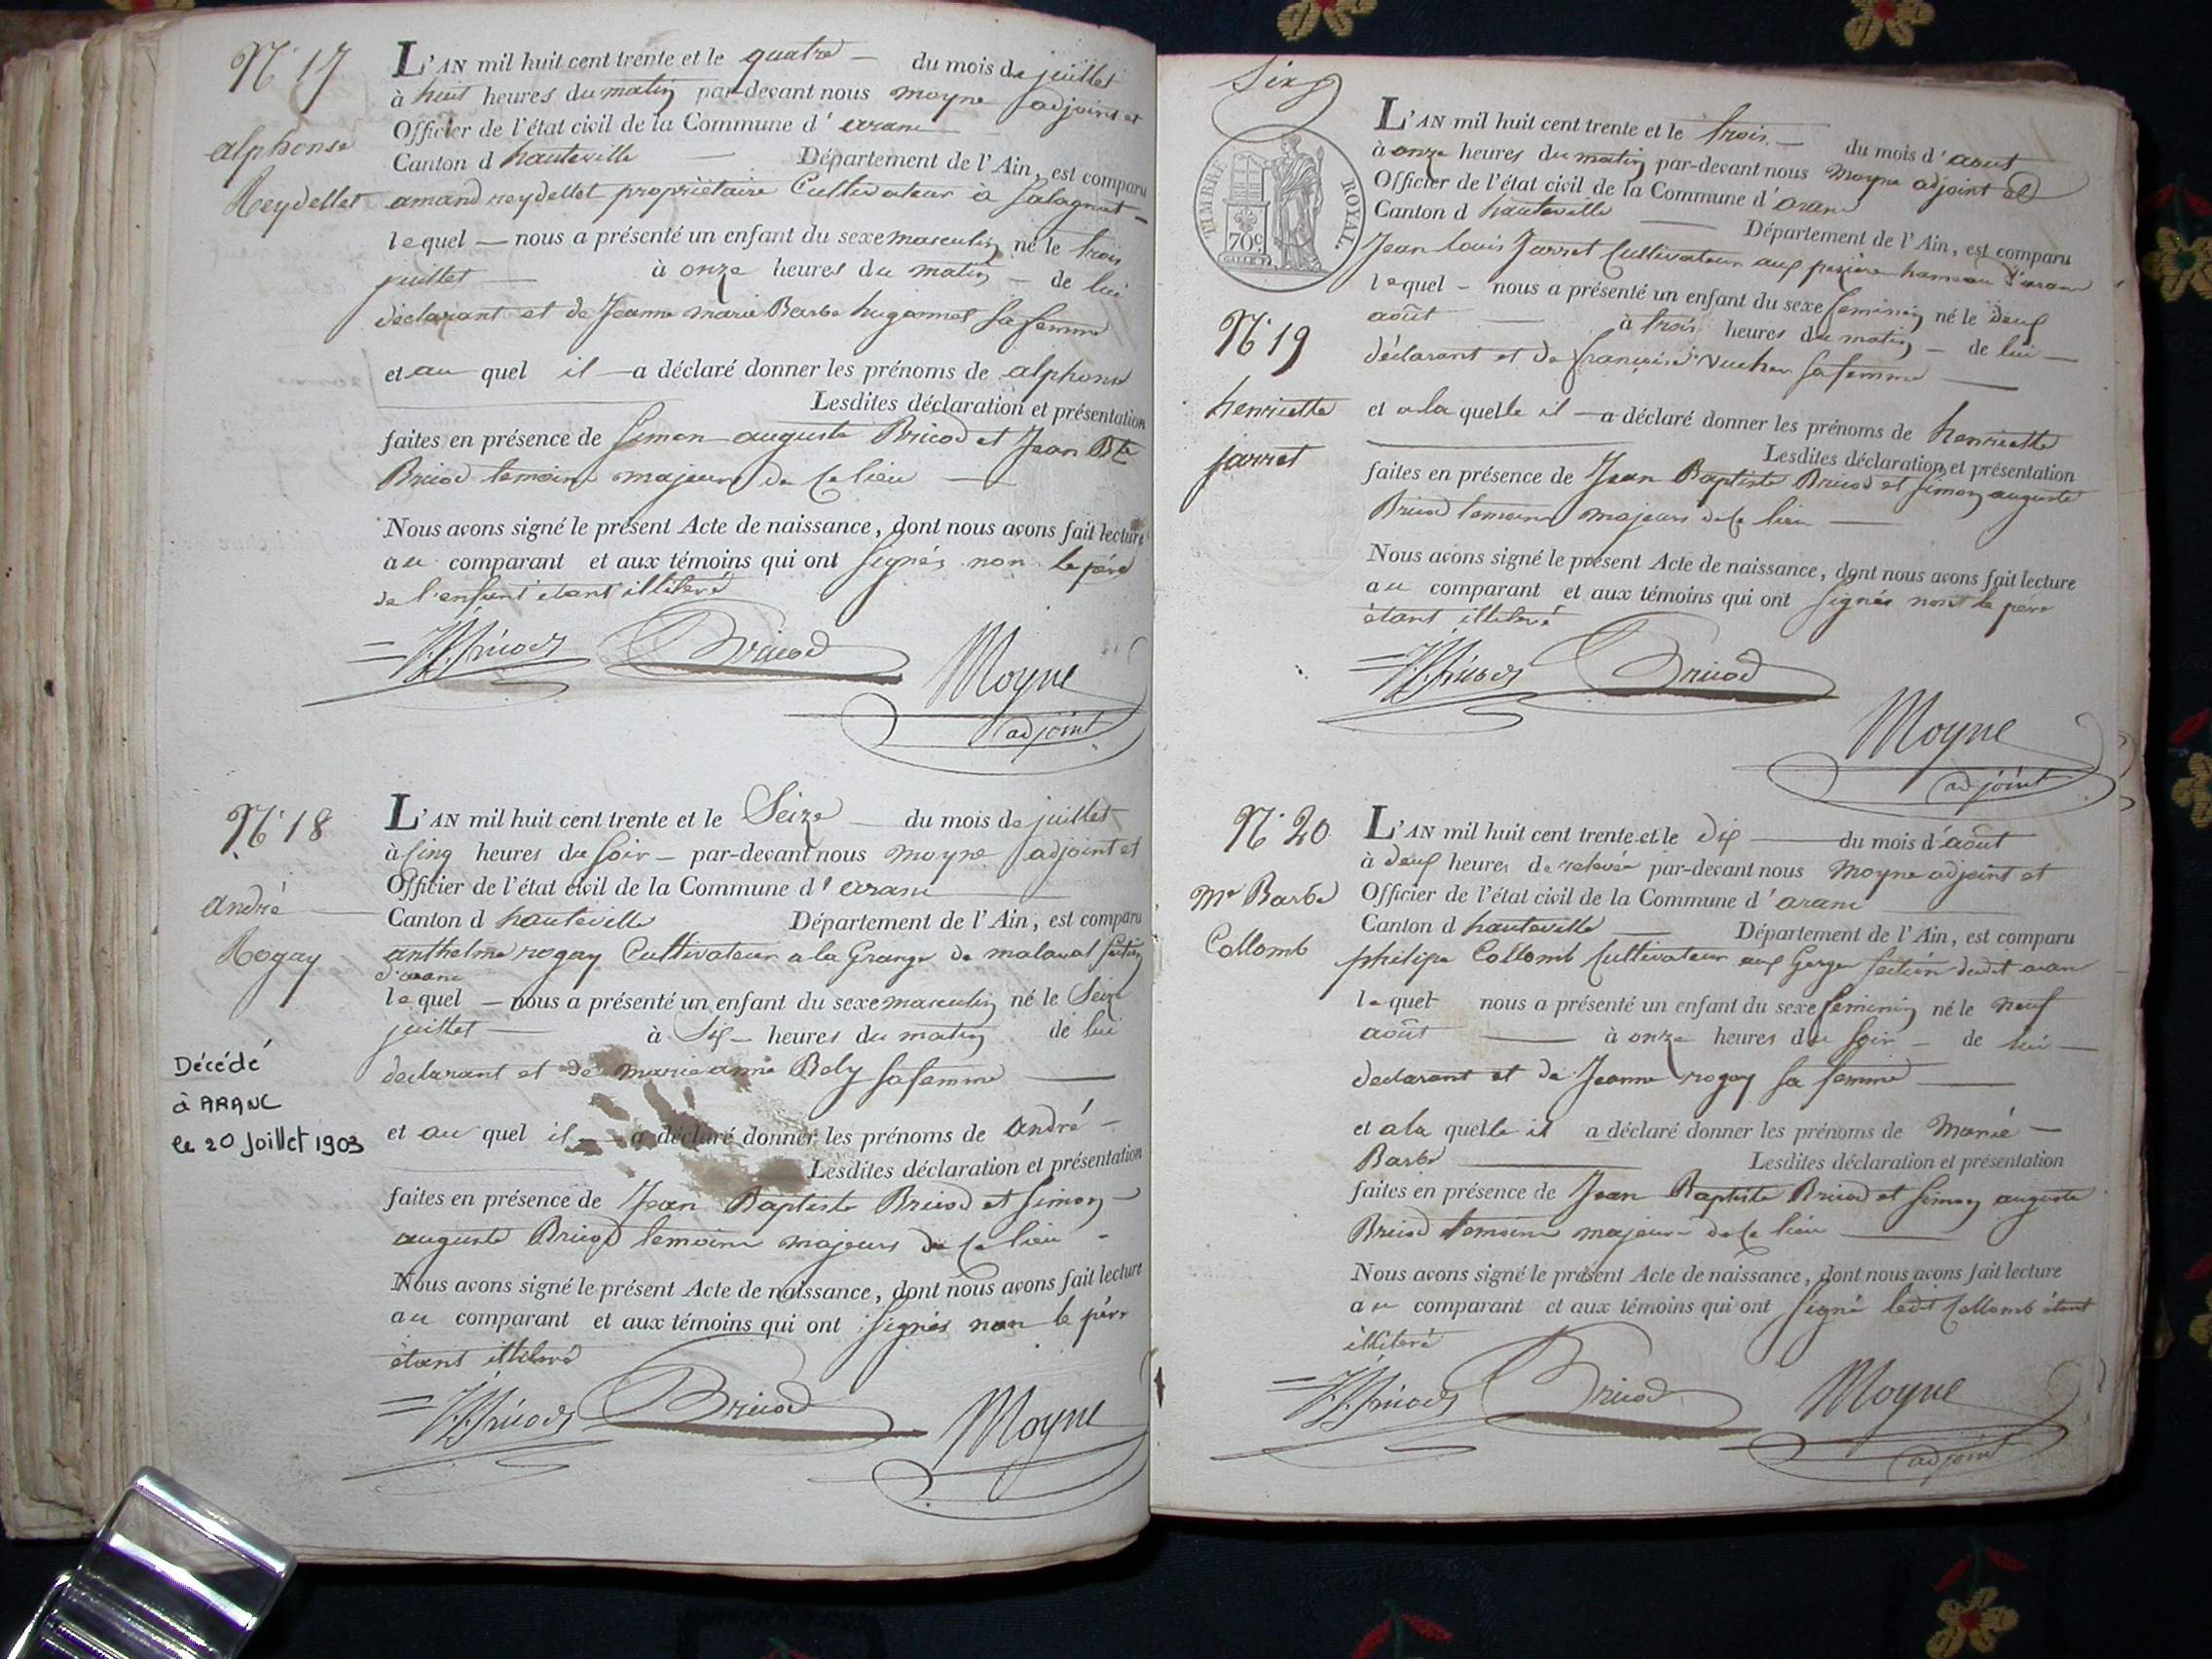 N° 17
alphonse
Reydellet
L'AN mil huit cent trente et le quatre du mois de juillet
à huit heures du matin par-devant nous moyne adjoint et
Officier de l'état civil de la Commune d'aranc
Canton d hauteville Département de l'Ain, est comparu
amand reydellet propriétaire Cultivateur à Salagnat
lequel nous a présenté un enfant du sexe masculin né le trois
juillet à onze heures du matin de lui
déclarant et de Jeanne marie Barbe hugonnet sa femme
et au quel il a déclaré donner les prénoms de alphonse
Lesdites déclaration et présentation
faites en présence de Simon auguste Bricod et Jean Bte
Bricod temoins majeurs de Ce lieu
Nous avons signé le présent Acte de naissance, dont nous avons fait lecture
au comparant et aux témoins qui ont signés non le père
de l'enfant étant illiteré
JB Bricod Bricod Moyne
adjoint
N° 18
andré
Rogay
Décédé
à ARANC
le 20 Juillet 1903
L'AN mil huit cent trente et le Seize du mois de juillet
à Cinq heures du soir par-devant nous moyne adjoint et
Officier de l'état civil de la Commune d'aranc
Canton d hauteville Département de l'Ain, est comparu
anthelme rogay Cultivateur a la Grange de malaval section
d'aranc
lequel nous a présenté un enfant du sexe masculin né le Seize
juillet à Six heures du matin de lui
declarant et de marie anne Bely sa femme
et au quel il a déclaré donner les prénoms de andré
Lesdites déclaration et présentation
faites en présence de Jean Baptiste Bricod et Simon
auguste Bricod temoins majeurs de Ce lieu
Nous avons signé le présent Acte de naissance, dont nous avons fait lecture
au comparant et aux témoins qui ont signés non le père
étant illiteré
JB Bricod Bricod Moyne
Six
TIMBRE ROYAL
70c
N° 19
henriette
jarret
L'AN mil huit cent trente et le trois du mois d'aout
à onze heures du matin par-devant nous moyne adjoint et
Officier de l'état civil de la Commune d'aranc
Canton d hauteville Département de l'Ain, est comparu
Jean Louis Jarret Cultivateur aux hameau d'aranc
lequel nous a présenté un enfant du sexe feminin né le deux
août à trois heures du matin de lui
déclarant et de françoise sa femme
et a la quelle il a déclaré donner les prénoms de henriette
Lesdites déclaration et présentation
faites en présence de Jean Baptiste Bricod et Simon auguste
Bricod temoins majeurs de Ce lieu
Nous avons signé le présent Acte de naissance, dont nous avons fait lecture
au comparant et aux témoins qui ont signés non le père
étant illiteré
JB Bricod Bricod
Moyne
adjoint
N° 20
Me Barbe
Collomb
L'AN mil huit cent trente et le dix du mois d'août
à deux heures de relevée par-devant nous moyne adjoint et
Officier de l'état civil de la Commune d'aranc
Canton d hauteville Département de l'Ain, est comparu
philipe Collomb Cultivateur aux Gorges section dudit aranc
lequel nous a présenté un enfant du sexe feminin né le neuf
août à onze heures du soir de lui
declarant et de Jeanne rogay sa femme
et a la quelle il a déclaré donner les prénoms de Marie
Barbe Lesdites déclaration et présentation
faites en présence de Jean Baptiste Bricod et Simon auguste
Bricod temoins majeurs de Ce lieu
Nous avons signé le présent Acte de naissance, dont nous avons fait lecture
au comparant et aux témoins qui ont signé ledit Collomb étant
illiteré
JB Bricod Bricod Moyne
adjoint